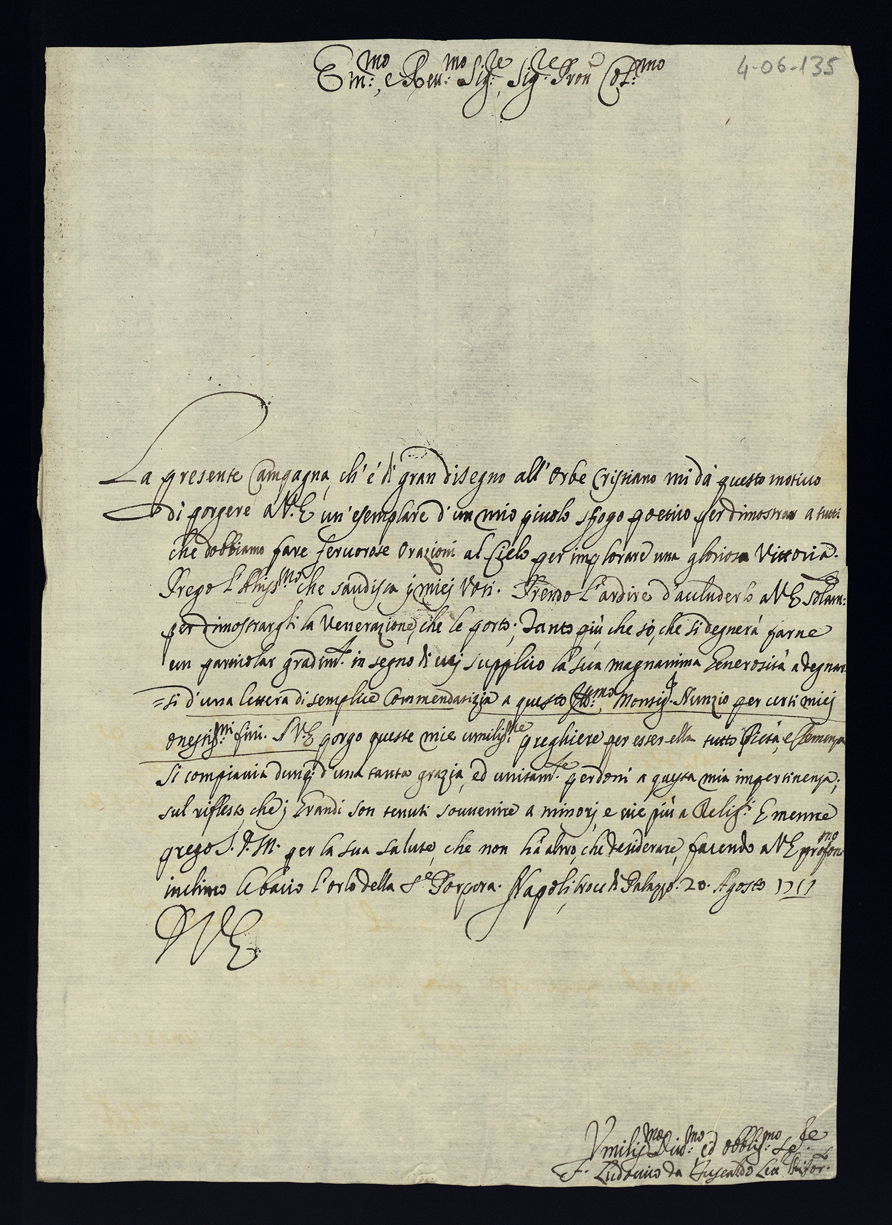 4-06-135
Em:mo, e Reu:mo Sig:re, Sig:re Pron Col:mo
La presente Campagna, ch'é di gran disegno all'Orbe Cristiano mi dà questo motiuo
di porgere a V.E. un'esemplare d'un mio piuolo sfogo poetico per dimostrar a tutti
che dobbiamo fare feruorose Orazioni al Cielo per implorare una gloriosa Vittoria.
Prego l'Altiss:mo che saudisca j miej Voti. Prendo l'ardire d'accluderlo a V.E. solam:
per dimostrargli la Venerazione, che le porto; Tanto più che sò, che si degnerà farne
un particolar gradim:to in segno di cuj supplico la sua magnanima Generosità a degnar
=si d'una lettera di semplice Commendatizia a questo Monsig: Nunzio per certi miej
onestiss:mi fini. A V.E. porgo queste mie umiliss:me preghiere per esser ella tutto Pietà, e Clemenza
Si compiaccia dunq; d'una tanta grazia, ed unitam:te perdoni a questa mia impertinenza;
sul riflesso, che j Grandi son tenuti souuenire a minorj, e uie più a Relig:i E mentre
prego S.D.M. per la sua salute, che non hà altro, che desiderare, facendo a V.E. profon:mo
inchino le bacio l'orlo della S. Porpora. Napoli, Croce di Palazzo. 20. Agosto 1717
D V E
Vmiliss:mo Diu:mo ed obblig:mo
F. Ludouico da Fuscaldo